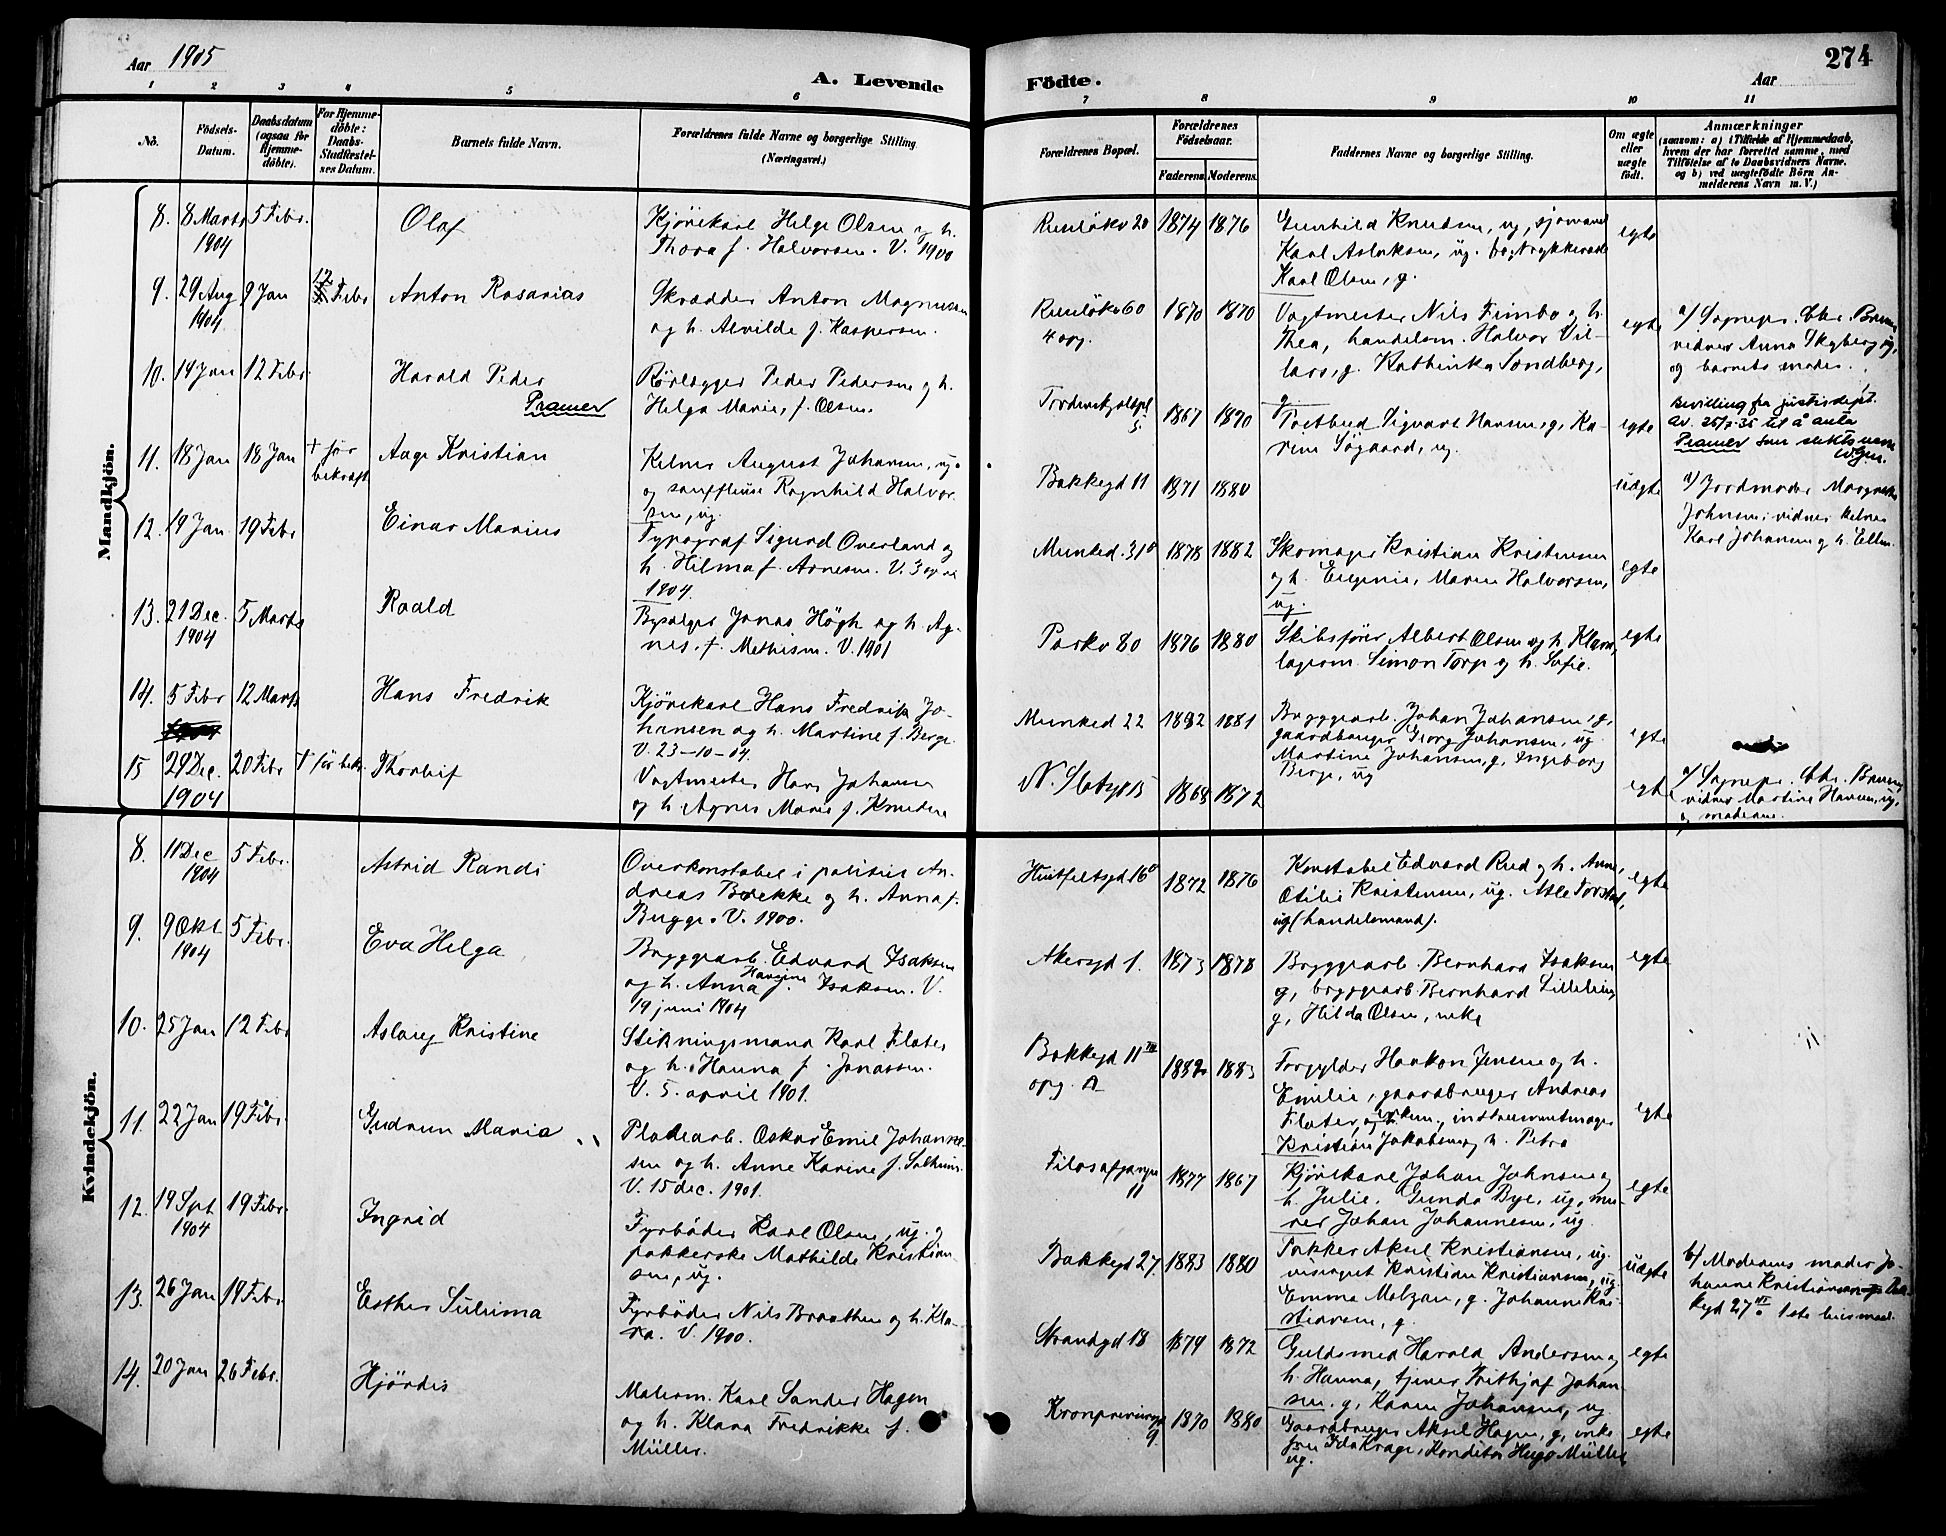 Aar 1905
A. Levende
Födte.
Aar
274
1 2 3 4 5 6 7 8 9 10 11
No.
Födsels-Datum.
Daabsdatum (ogsaa for Hjemme-döbte).
For Hjemme-döbte: Daabs-Stadfæstel-ses Datum.
Barnets fulde Navn.
Forældrenes fulde Navne og borgerlige Stilling (Næringsvei.)
Forældrenes Bopæl.
Forældrenes Födselsaar.
Faderens. Moderens.
Faddernes Navne og borgerlige Stilling.
Om ægte eller uægte födt.
Anmærkninger
(saasom: a) i Tilfælde af Hjemmedaab, hvem der har forrettet samme, med Tilföielse af to Daabsvidners Navne, og b) ved uægtefödte Börn An-melderens Navn m. V.)
Mandkjön.
8. 8 Marts 1904 5 Febr. Olaf
Kjörekarl Helge Olsen og h.
Thora f. Halvorsen. V. 1900
Ruselökv 20 1874 1876
Gunhild Knudsen, ug, sjömand
Karl Aslaksen, ug.
Karl Olsen, g.
egte
9. 29 Aug 1904 9 Jan 12 Febr Anton Rosarias
Skrædder Anton Magnussen
og h. Alvilde f. Kaspersen.
Ruselökv 60
4 opg.
1870 1870
Vagtmester Nils Fimbo og h.
Thea, handelsm. Halvor Vil-
lars, g. Kathinka Sandberg,
g
egte
a/ Sognepr. Chr. Bruun
vidner Anna Skyberg ug,
og barnets moder.
10. 14 Jan 12 Febr. Harald Peder
Pramer
Rörlægger Peder Pedersen og h.
Helga Marie, f. Olsen.
5.
1867 1870
Postbud Sigvart Hansen, g, Ka-
rine Sögaard, ug.
egte
Bevilling fra justisdept.
av 25/7-35 til å anta
Pramer som slektsnavn
11. 18 Jan 18 Jan + för bekræft Aage Kristian
Kelner August Johansen, ug.
og souffleuse Ragnhild Halvor-
sen, ug.
Bakkegd 11 1871 1880
uægte
a/ Jordmoder Margrethe
Johnsen; vidner kelner
Karl Johansen og h. Ellen
12. 19 Jan 19 Febr Einar Marius
Typograf Sigurd Overland og
h. Hilma f. Arnesen. V. 3
1904.
Munked. 31 1878 1882
Skomager Kristian Kristensen
og h. Eugenie, Maren Halvorsen,
ug.
egte
13. 21 Dec. 1904 5 Marts Roald
Bysælger Jonas Högh og h. Ag-
nes, f. Mathisen. V. 1901
Parkv 80 1876 1880
Skibsförer Albert Olsen og h. Klara,
lagerm. Simon Torp og h. Sofie.
egte
14. 5 Febr 12 Marts Hans Fredrik
Kjörekarl Hans Fredrik Jo-
hansen og h. Martine f. Berge
V. 23-10-04.
Munked 22 1882 1881
Bryggearb. Johan Johansen, g,
gaardbruger Georg Johansen, ug
Martine Johansen, g, Ingeborg
Berge, ug
egte
15 29 Dec. 1904 20 Febr + för bekr. Thorleif
Vagtmester Hans Johansen
og h. Agnes Marie f. Knudsen
N. Slotsgd 15 1868 1872
egte
a/ Sognepr. Chr. Bruun,
vidner Martine Hansen, ug,
og moderen.
Kvindekjön.
8. 11 Dec 1904 5 Febr. Astrid Randi
Overkonstabel i politiet An-
dreas Brekke og h. Anna f.
Bugge. V. 1900.
Huitfeltsgd 16 1872 1876
Konstabel Edvard Rud og h. Anna,
Otilie Kristensen, ug. Atle Torstad,
ug (handelsmand).
egte
9. 9 Okt 1904 5 Febr. Eva Helga
Bryggearb. Edvard Isaksen
og h. Anna Hansine f. Isaksen. V.
19 juni 1904
Akersgd 1. 1873 1878
Bryggearb. Bernhard Isaksen
g, bryggearb. Bernhard Lilleeng
g, Hilda Olsen, enke
egte
10. 25 Jan 12 Febr Aslaug Kristine
Stikningsmand Karl Flater
og h. Hanna f. Jonassen.
V. 5. april 1901.
Bakkegd 11
opg. A
1882 1883
Forgylder Haakon Jensen og h.
Emilie, gaardbruger Andreas
Flater, enkem., instrumentmager
Kristian Jakobsen og h. Petra
egte
11. 22 Jan 19 Febr. Gudrun Maria
Pladearb. Oskar Emil Johanne-
sen og h. Anne Karine f. Solheim.
V. 15 dec. 1901.
Filosofgangen
11
1877 1867
Kjörekarl Johan Johnsen og
h. Julie. Gunda Bye, ug, mu-
rer Johan Johannesen, ug.
egte
12. 19 Spt. 1904 19 Febr. Ingrid
Fyrböder Karl Olsen, ug. og
pakkerske Mathilde Kristian-
sen, ug.
Bakkegd 27. 1883 1880
Pakker Aksel Kristiansen, ug.
visergut Kristian Kristiansen, ug.
Emma Molzau, g. Johanne Kri-
stiansen, g.
uægte
b/ Moderens moder Jo-
hanne Kristiansen, Bak-
kegd 27. 1ste
13. 26 Jan 19 Febr. Esther Sulima
Fyrböder Nils Braathen og h. Kla-
ra. V. 1900.
Strandgd 18 1879 1872
Guldsmed Harald Andersen og
h. Hanna, tjener Frithjof Johan-
sen. g, Karen Johansen, ug.
egte
14. 20 Jan 26 Febr. Hjördis
Malerm. Karl Sander Hagen
og h. Klara Fredrikke f.
Müller.
Kronprinsensgd
9.
1870 1880
Gaardbruger Aksel Hagen, g, enke-
fru Ida Krage, Konditor Hugo Müller
ug.
egte